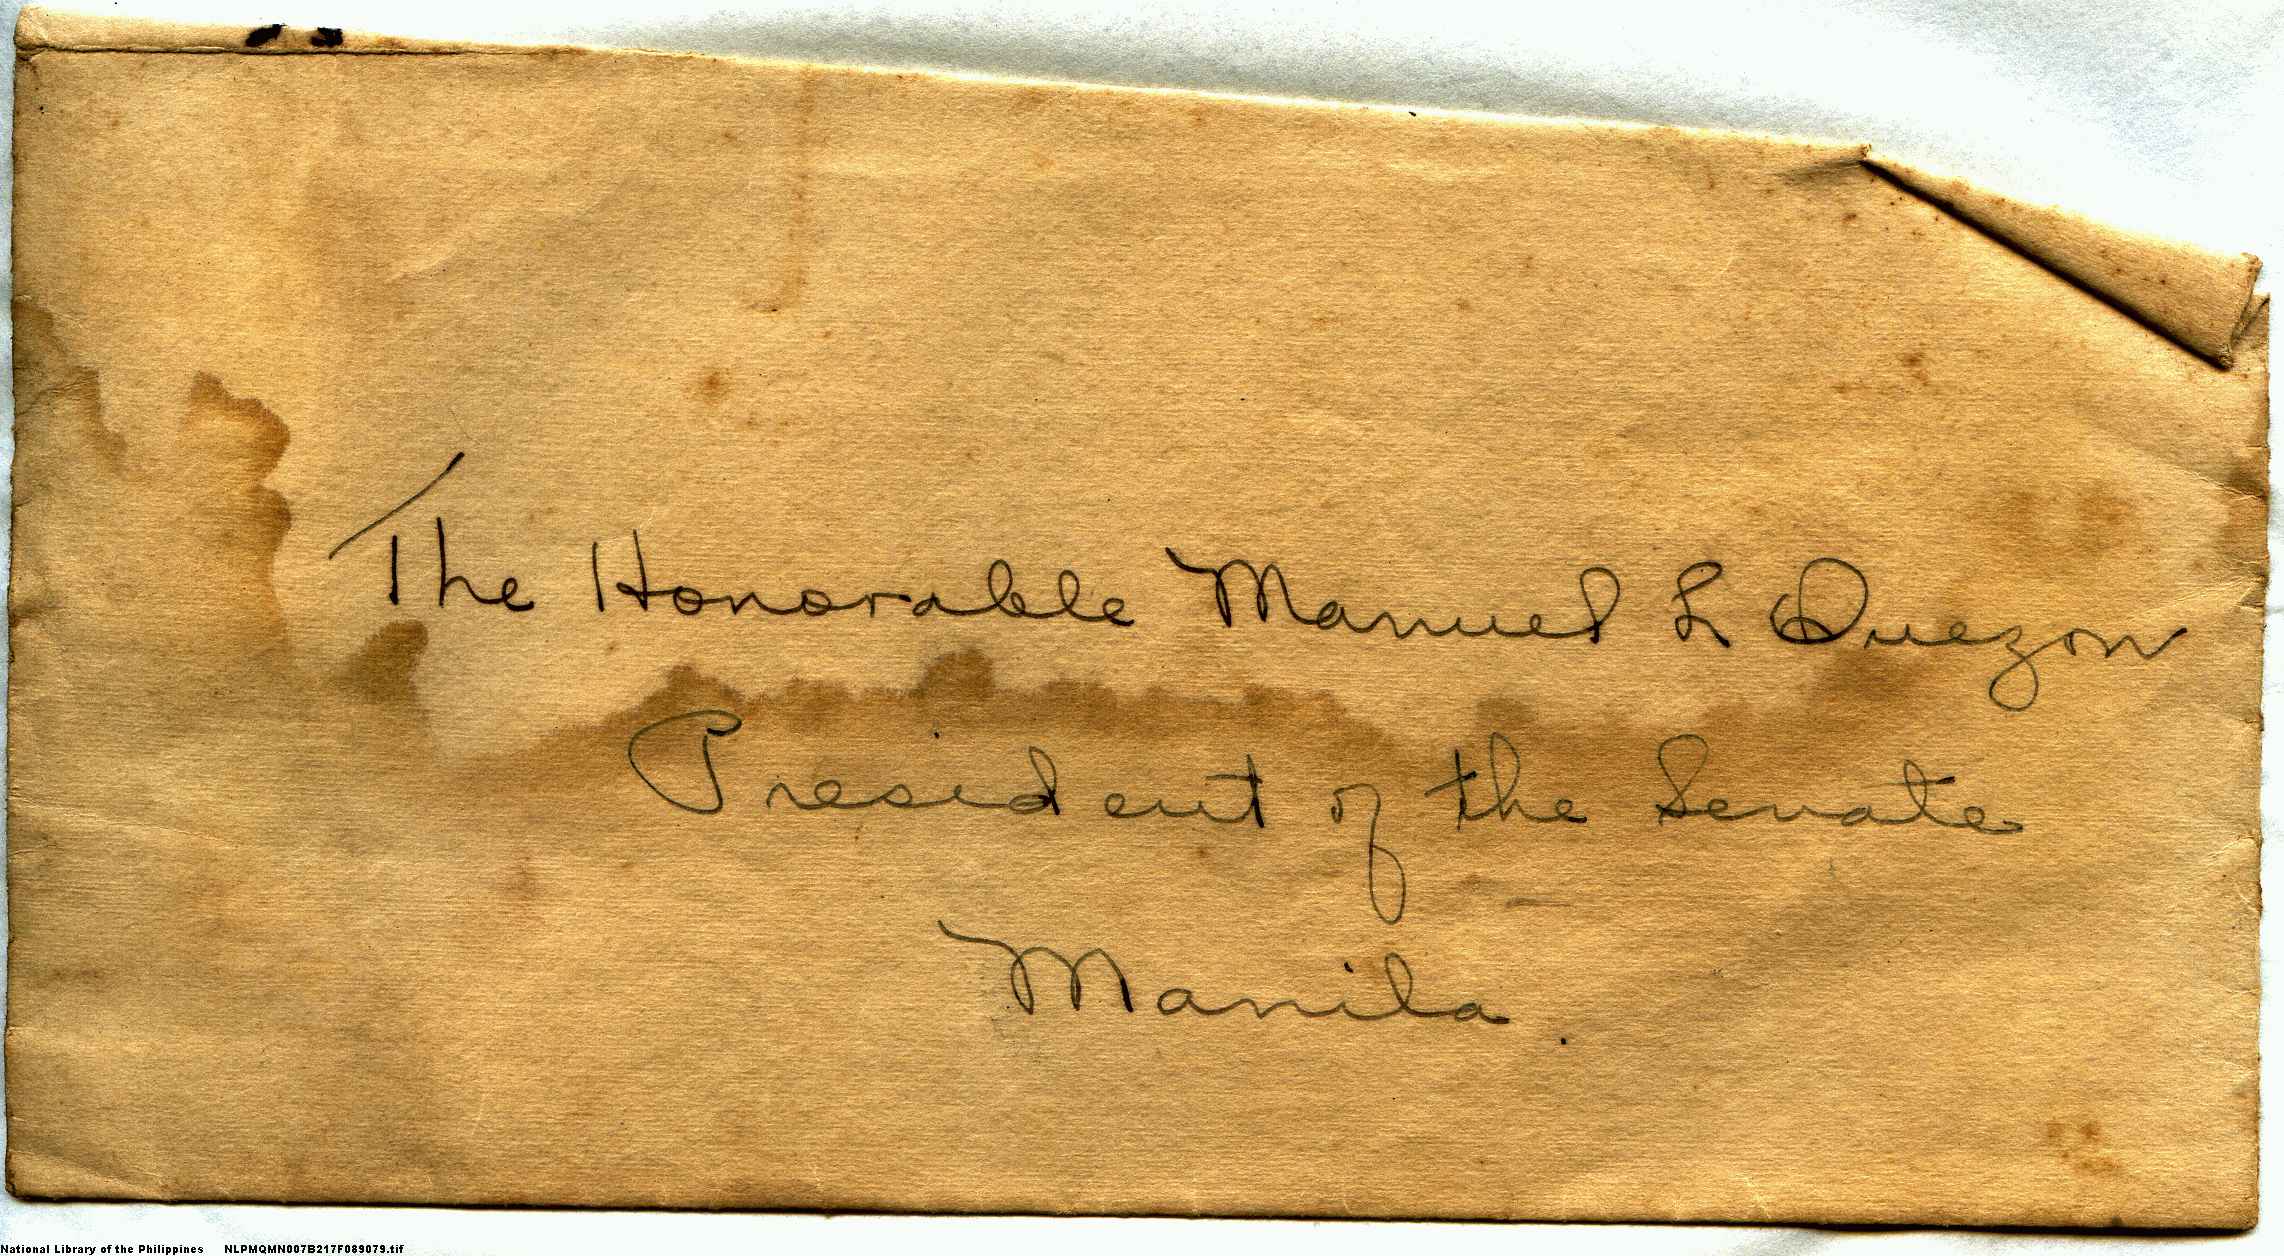 The Honorable Manuel L Quezon
President of the Senate
Manila.
National Library of the Philippines NLPMQMN007B217F089079.tif